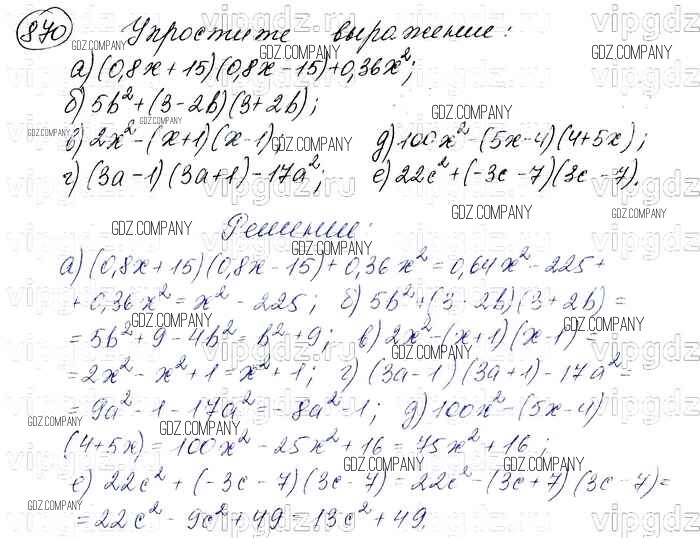 870 Упростите выражение:
а) (0,8x + 15)(0,8x - 15) + 0,36x²;
б) 5b² + (3 - 2b)(3 + 2b);
в) 2x² - (x+1)(x-1); д) 100x² - (5x-4)(4+5x);
г) (3a-1)(3a+1) - 17a²; е) 22c² + (-3c-7)(3c-7).
Решение:
а) (0,8x + 15)(0,8x - 15) + 0,36x² = 0,64x² - 225 +
+ 0,36x² = x² - 225; б) 5b² + (3 - 2b)(3 + 2b) =
= 5b² + 9 - 4b² = b² + 9; в) 2x² - (x+1)(x-1) =
= 2x² - x² + 1 = x² + 1; г) (3a-1)(3a+1) - 17a² =
= 9a² - 1 - 17a² = -8a² - 1; д) 100x² - (5x-4)
(4+5x) = 100x² - 25x² + 16 = 75x² + 16;
е) 22c² + (-3c-7)(3c-7) = 22c² - (3c+7)(3c-7) =
= 22c² - 9c² + 49 = 13c² + 49.